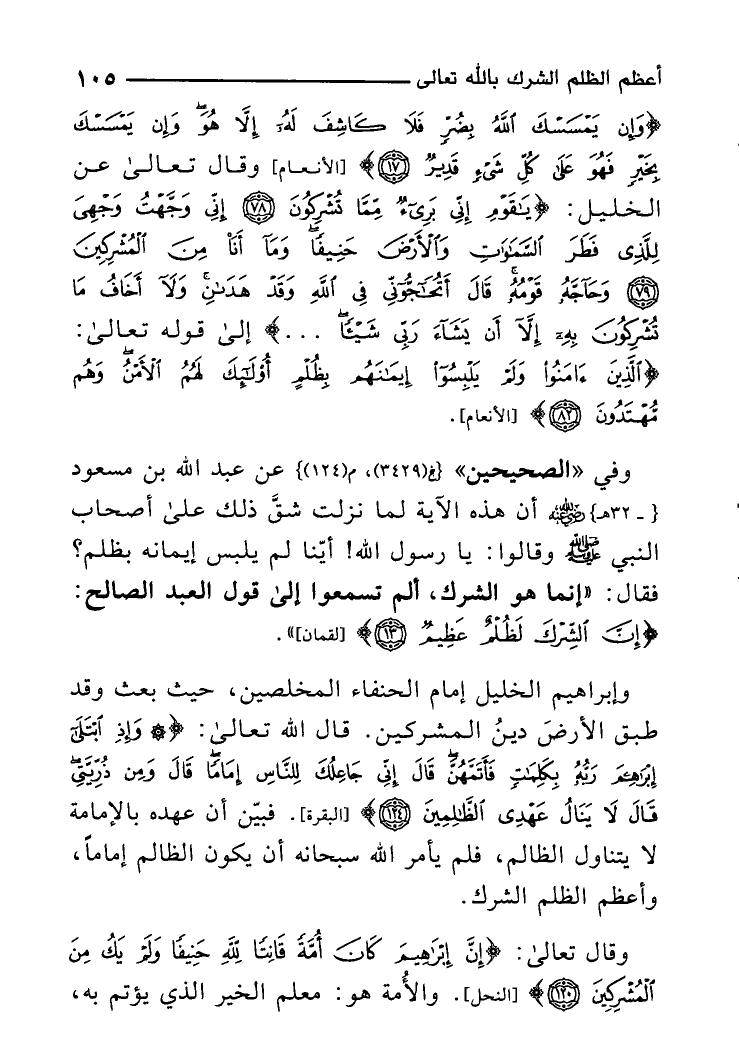 أعظم الظلم الشرك بالله تعالى ١٠٥
﴿وَإِن يَمْسَسْكَ ٱللَّهُ بِضُرٍّ فَلَا كَاشِفَ لَهُۥٓ إِلَّا هُوَ ۖ وَإِن يَمْسَسْكَ
بِخَيْرٍ فَهُوَ عَلَىٰ كُلِّ شَىْءٍ قَدِيرٌ ﴿١٧﴾﴾ [الأنعام] وقال تعالىٰ عن
الخليل: ﴿يَٰقَوْمِ إِنِّى بَرِىٓءٌ مِّمَّا تُشْرِكُونَ ﴿٧٨﴾ إِنِّى وَجَّهْتُ وَجْهِىَ
لِلَّذِى فَطَرَ ٱلسَّمَٰوَٰتِ وَٱلْأَرْضَ حَنِيفًا ۖ وَمَآ أَنَا۠ مِنَ ٱلْمُشْرِكِينَ
﴿٧٩﴾ وَحَآجَّهُۥ قَوْمُهُۥ ۚ قَالَ أَتُحَٰٓجُّوٓنِّى فِى ٱللَّهِ وَقَدْ هَدَىٰنِ ۚ وَلَآ أَخَافُ مَا
تُشْرِكُونَ بِهِۦٓ إِلَّآ أَن يَشَآءَ رَبِّى شَيْـًٔا ۗ ...﴾ إلىٰ قوله تعالىٰ:
﴿ٱلَّذِينَ ءَامَنُوا۟ وَلَمْ يَلْبِسُوٓا۟ إِيمَٰنَهُم بِظُلْمٍ أُو۟لَٰٓئِكَ لَهُمُ ٱلْأَمْنُ ۖ وَهُم
مُّهْتَدُونَ ﴿٨٢﴾﴾ [الأنعام].
وفي «الصحيحين» {خ(٣٤٢٩)، م(١٢٤)} عن عبد الله بن مسعود
{ ـ ٣٢هـ} رضي الله عنه أن هذه الآية لما نزلت شقَّ ذلك علىٰ أصحاب
النبي ﷺ وقالوا: يا رسول الله! أيّنا لم يلبس إيمانه بظلم؟
فقال: «إنما هو الشرك، ألم تسمعوا إلىٰ قول العبد الصالح:
﴿إِنَّ ٱلشِّرْكَ لَظُلْمٌ عَظِيمٌ ﴿١٣﴾﴾ [لقمان]».
وإبراهيم الخليل إمام الحنفاء المخلصين، حيث بعث وقد
طبق الأرضَ دينُ المشركين. قال الله تعالىٰ: ﴿۞ وَإِذِ ٱبْتَلَىٰٓ
إِبْرَٰهِـۧمَ رَبُّهُۥ بِكَلِمَٰتٍ فَأَتَمَّهُنَّ ۖ قَالَ إِنِّى جَاعِلُكَ لِلنَّاسِ إِمَامًا ۖ قَالَ وَمِن ذُرِّيَّتِى ۖ
قَالَ لَا يَنَالُ عَهْدِى ٱلظَّٰلِمِينَ ﴿١٢٤﴾﴾ [البقرة]. فبيّن أن عهده بالإمامة
لا يتناول الظالم، فلم يأمر الله سبحانه أن يكون الظالم إماماً،
وأعظم الظلم الشرك.
وقال تعالىٰ: ﴿إِنَّ إِبْرَٰهِيمَ كَانَ أُمَّةً قَانِتًا لِّلَّهِ حَنِيفًا وَلَمْ يَكُ مِنَ
ٱلْمُشْرِكِينَ ﴿١٢٠﴾﴾ [النحل]. والأُمة هو: معلم الخير الذي يؤتم به،